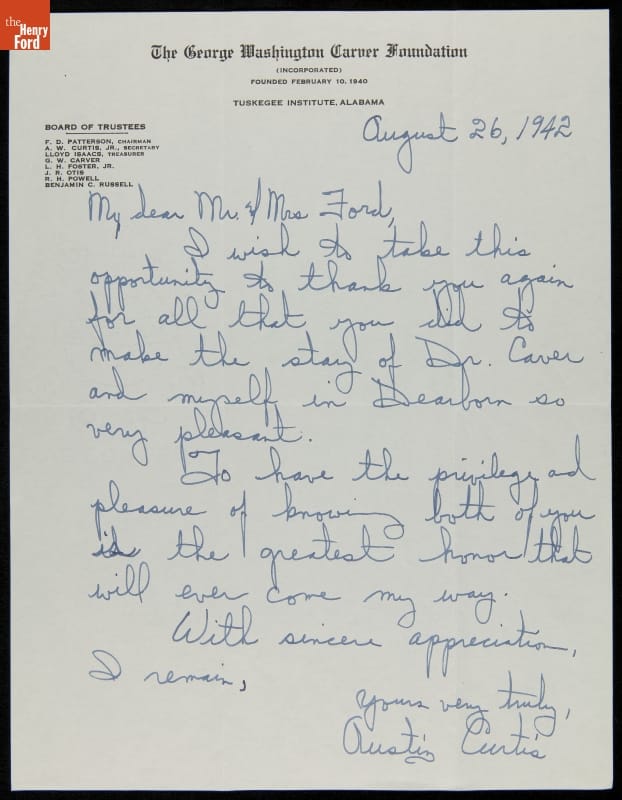 the
Henry
Ford
The George Washington Carver Foundation
(INCORPORATED)
FOUNDED FEBRUARY 10, 1940
TUSKEGEE INSTITUTE, ALABAMA
BOARD OF TRUSTEES
F. D. PATTERSON, CHAIRMAN
A. W. CURTIS, JR., SECRETARY
LLOYD ISAACS, TREASURER
G. W. CARVER
L. H. FOSTER, JR.
J. R. OTIS
R. H. POWELL
BENJAMIN C. RUSSELL
August 26, 1942
My dear Mr. & Mrs Ford,
I wish to take this
opportunity to thank you again
for all that you did to
make the stay of Dr. Caver
and myself in Dearborn so
very pleasant.
To have the privilege ad
pleasure of knowing both of you
is the greatest honor that
will ever come my way.
With sincere appreciation,
I remain,
yours very truly,
Austin Curtis